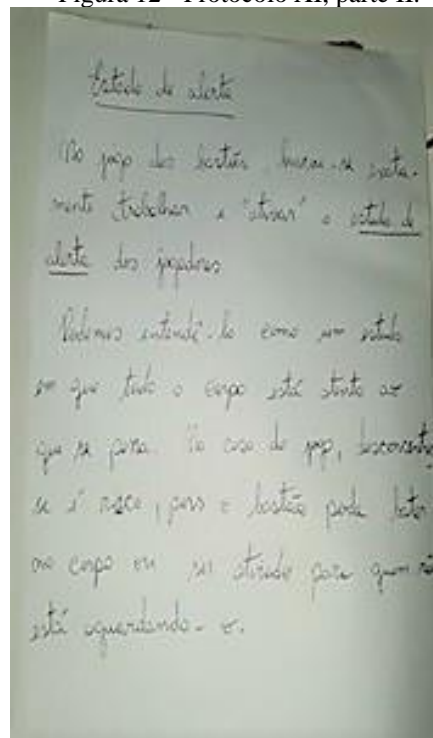 Figura 12 - Protocolo XI, parte II.
Estado de alerta
No jogo dos bastões, busca-se exata-
mente trabalhar e "ativar" o estado de
alerta dos jogadores
Podemos entendê-lo como um estado
em que todo o corpo está atento ao
que se passa. No caso do jogo, desconcentrar-
se é risco, pois o bastão pode bater
no corpo ou ser atirado para quem não
está aguardando-o.